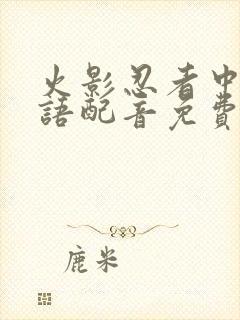 火影忍者中
語配音免費
鹿米